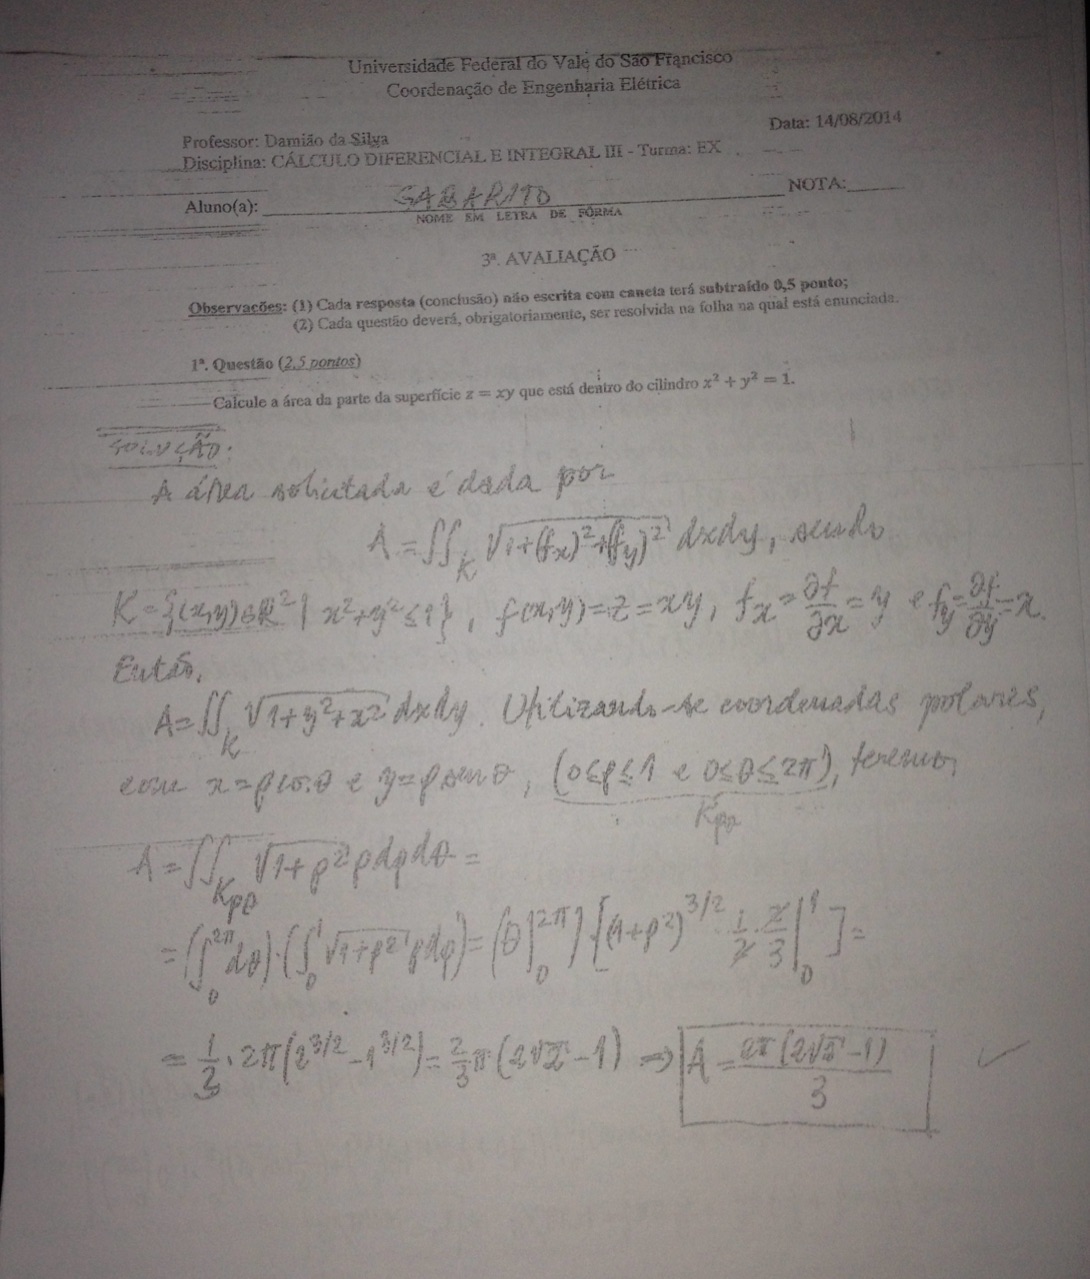 Universidade Federal do Vale do São Francisco
Coordenação de Engenharia Elétrica
Professor: Damião da Silva
Data: 14/08/2014
Disciplina: CÁLCULO DIFERENCIAL E INTEGRAL III - Turma: EX
Aluno(a): GABARITO NOTA:
NOME EM LETRA DE FÔRMA
3ª. AVALIAÇÃO
Observações: (1) Cada resposta (conclusão) não escrita com caneta terá subtraído 0,5 ponto;
(2) Cada questão deverá, obrigatoriamente, ser resolvida na folha na qual está enunciada.
1ª. Questão (2,5 pontos)
Calcule a área da parte da superfície z = xy que está dentro do cilindro x² + y² = 1.
SOLUÇÃO:
A área solicitada é dada por
A = ∬_K √(1+(fx)²+(fy)²) dxdy, sendo
K = {(x,y)∈ℝ² | x²+y² ≤ 1}, f(x,y)=z=xy, fx = ∂f/∂x = y e fy = ∂f/∂y = x.
Então,
A = ∬_K √(1+y²+x²) dxdy. Utilizando-se coordenadas polares,
com x=ρcosθ e y=ρsenθ, (0≤ρ≤1 e 0≤θ≤2π), teremos
Kρθ
A = ∬_Kρθ √(1+ρ²) ρdρdθ =
= (∫₀^2π dθ)·(∫₀^1 √(1+ρ²) ρdρ) = (θ|₀^2π)·[(1+ρ²)^3/2 · 1/2 · 2/3 |₀^1] =
= 1/3 · 2π(2^3/2 − 1^3/2) = 2/3 π (2√2 − 1) ⇒ A = 2π(2√2 − 1)/3 ✓